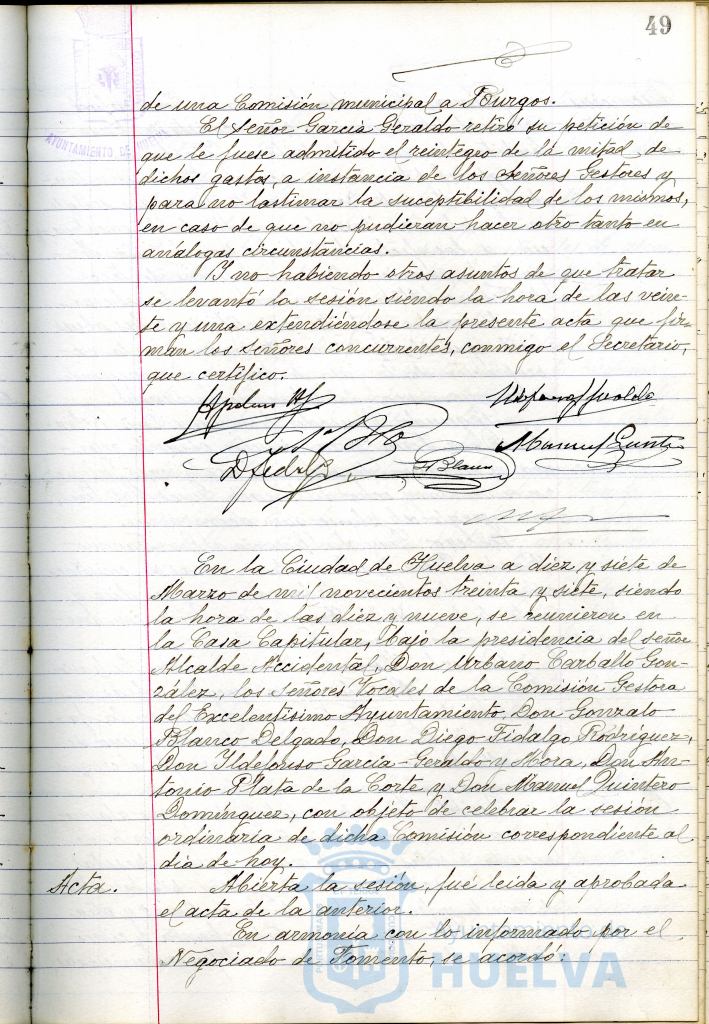 49
AYUNTAMIENTO DE HUELVA
de una Comisión municipal a Burgos.
El Señor García Geraldo retiró su petición de
que le fuese admitido el reintegro de la mitad de
dichos gastos, a instancia de los Señores Gestores y
para no lastimar la suceptibilidad de los mismos,
en caso de que no pudieran hacer otro tanto en
análogas circunstancias.
Y no habiendo otros asuntos de que tratar
se levantó la sesión siendo la hora de las vein-
te y una extendiéndose la presente acta que fir-
man los Señores concurrentes, conmigo el Secretario,
que certifico.
Manuel Quintero
D Fidalgo
G Blanco
En la Ciudad de Huelva a diez y siete de
Marzo de mil novecientos treinta y siete, siendo
la hora de las diez y nueve, se reunieron en
la Casa Capitular, bajo la presidencia del señor
Alcalde Accidental, Don Urbano Carballo Gon-
zález, los Señores Vocales de la Comisión Gestora
del Excelentísimo Ayuntamiento, Don Gonzalo
Blanco Delgado, Don Diego Fidalgo Rodríguez,
Don Ildefonso García-Geraldo y Mora, Don An-
tonio Plata de la Corte y Don Manuel Quintero
Domínguez, con objeto de celebrar la sesión
ordinaria de dicha Comisión correspondiente al
día de hoy.
Acta. Abierta la sesión, fué leida y aprobada
el acta de la anterior.
En armonía con lo informado por el
Negociado de Fomento, se acordó:
Ayuntamiento de
HUELVA